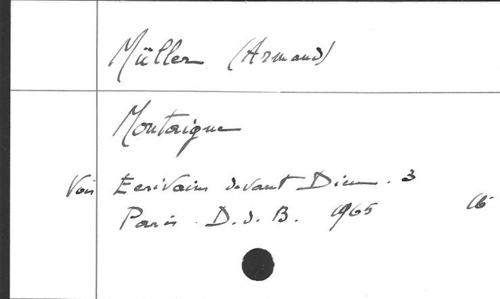 Müller (Armand)
Montaigne
Voir Ecrivains devant Dieu. 3
Paris. D.d.B. 1965 16